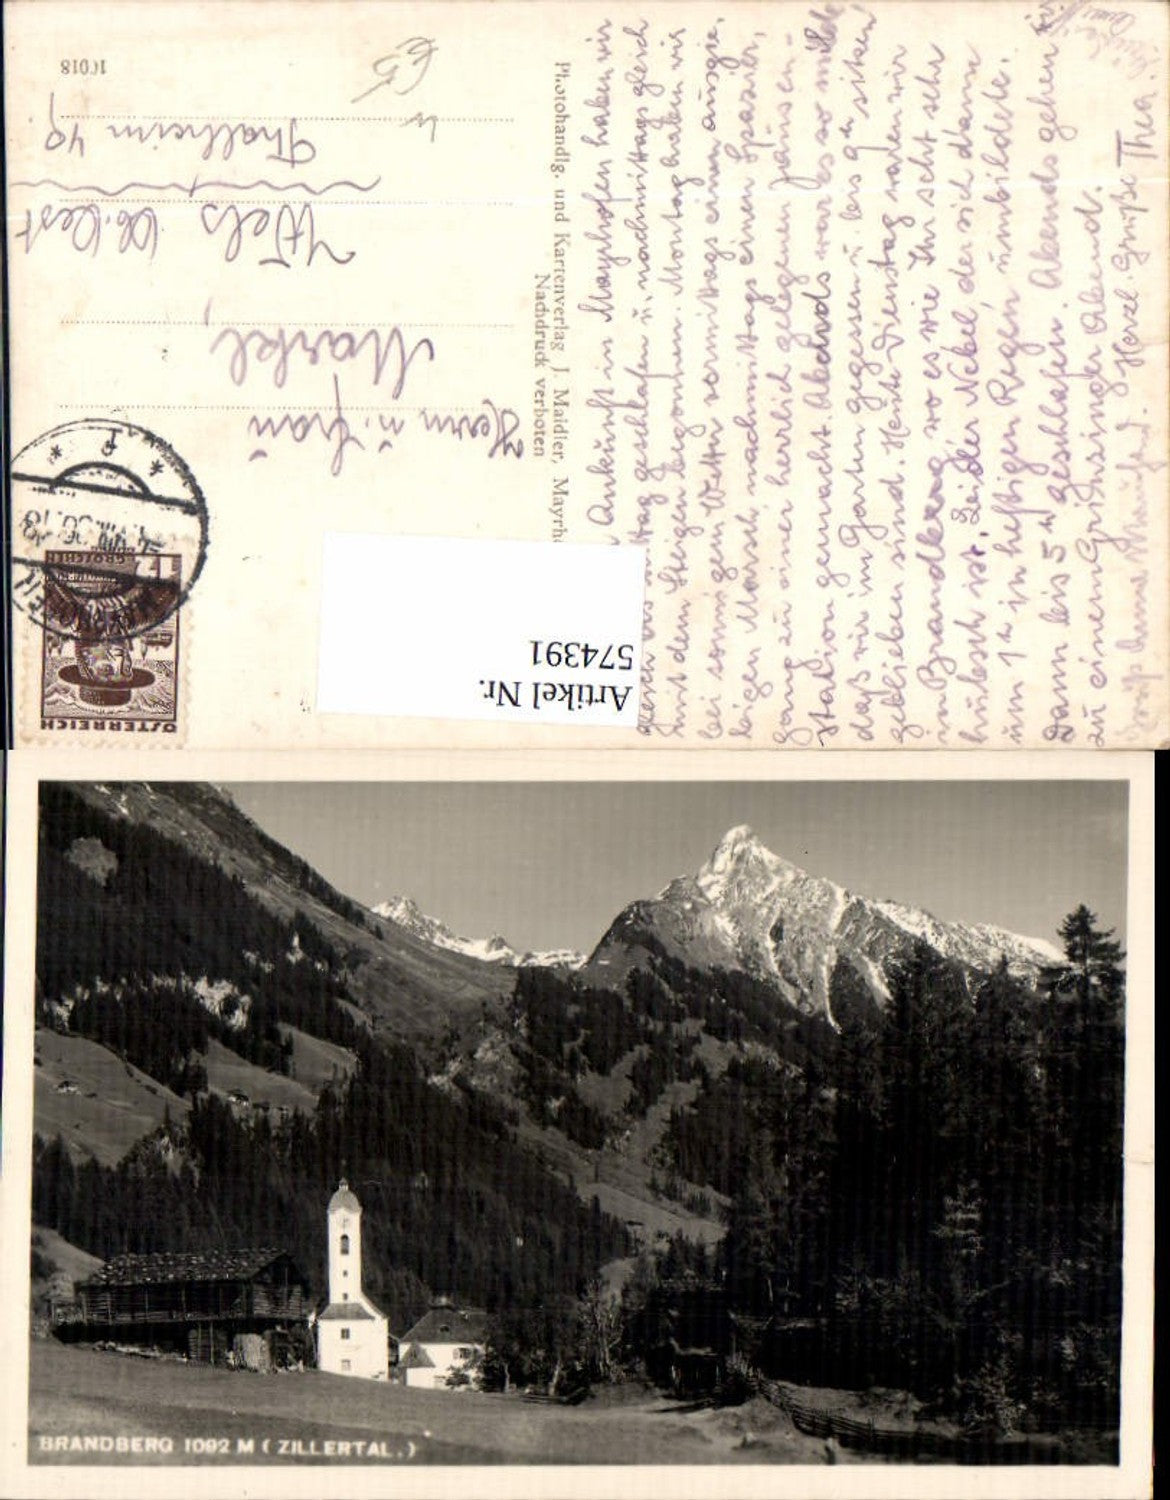 Nach der Ankunft in Mayrhofen haben wir
gleich bis Mittag geschlafen u. nachmittags gleich
mit dem Steigen begonnen. Montag haben wir
bei sonnigem Wetter vormittags einen ausgie-
bigen Marsch, nachmittags einen Spazier-
gang zu einer herrlich gelegenen Jausen-
station gemacht. Abends war es so milde
daß wir im Garten gegessen u. bis 9h sitzen
geblieben sind. Heute Dienstag waren wir
in Brandberg wo es wie Ihr seht sehr
hübsch ist. Leider Nebel der sich dann
um 1h in heftigen Regen umbildete.
Dann bis 5h geschlafen. Abends gehen wir
zu einem Grinzinger Abend.
Herzl. Grüße Thea.
Photohandlg. und Kartenverlag J. Maidler, Mayrh
Nachdruck verboten
Herrn u. Frau
Markl,
Wels Ob. Oest
Thalheim 49
10018
€5
ÖSTERREICH
GROSCHEN
VIII.36.18
Artikel Nr.
574391
BRANDBERG 1092 M (ZILLERTAL.)